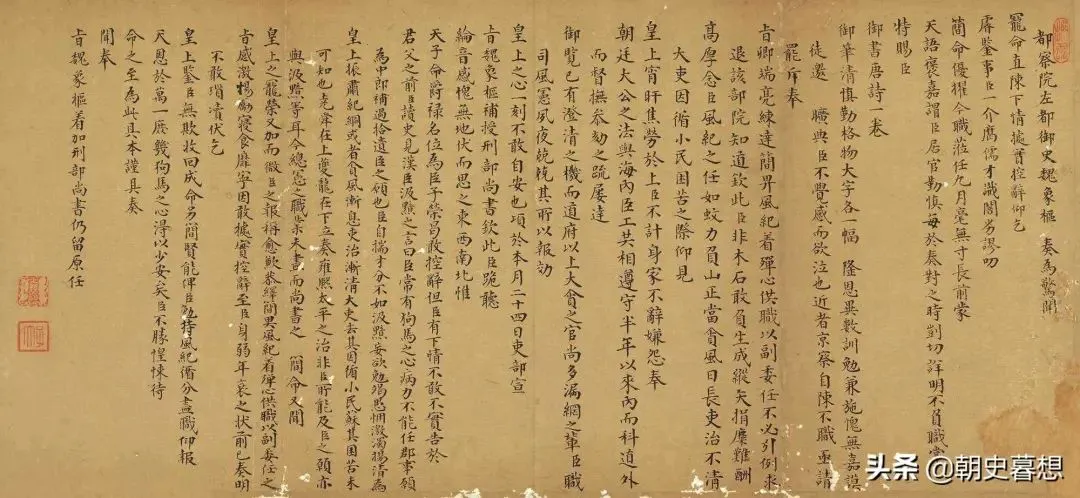 都察院左都御史魏象樞 奏為驚聞
寵命直陳下情據實控辭仰乞
睿鑒事臣一介腐儒才識闇劣謬叨
簡命優擢今職蒞任九月毫無寸長前蒙
天語褒嘉謂臣居官勤慎每於奏對之時剴切詳明不負職掌
特賜臣
御書唐詩一卷
御筆清慎勤格物大字各一幅 隆恩異數訓勉兼施愧無嘉謨
徒邀 曠典臣不覺感而欲泣也近者京察自陳不職亟請
罷斥奉
旨卿端亮練達簡畀風紀着殫心供職以副委任不必引例求
退該部院知道欽此臣非木石敢負生成縱矢捐麋難酬
高厚念臣風紀之任如蚊力負山正當貪風日長吏治不清
大吏因循小民困苦之際仰見
皇上宵旰焦勞於上臣不計身家不辭嫌怨奉
朝廷大公之法與海內臣工共相遵守半年以來內而科道外
而督撫參劾之疏屢達
御覽已有澄清之機而道府以上大貪之官尚多漏網之輩臣職
司風憲夙夜兢兢其所以報効
皇上之心一刻不敢自安也項於本月二十四日吏部宣
旨魏象樞補授刑部尚書欽此臣跪聽
綸音感愧無地伏而思之東西南北惟
天子命爵祿名位為臣子榮曷敢控辭但臣有下情不敢不實告於
君父之前臣讀史見漢臣汲黯之言曰臣常有狗馬之心病力不能任郡事願
為中郎補過拾遺臣之願也臣自揣才分不如汲黯妄欲勉竭愚悃激濁揚清為
皇上振肅紀綱或者貪風漸息吏治漸清大吏去其因循小民蘇其困苦未
可知也堯舜在上夔龍在下立奏雍熙太平之治非臣所能及臣之願亦
與汲黯等耳今總憲之職業未盡而尚書之 簡命又聞
皇上之寵榮又加而微臣之報稱愈歉恭繹簡畀風紀着殫心供職以副委任之
旨感激揚勵寢食靡寧因敢據實控辭至臣身弱年衰之狀前已奏明
不敢瑣瀆伏乞
皇上鑒臣無欺收回成命另簡賢能俾臣勉持風紀循分盡職仰報
天恩於萬一庶幾狗馬之心得以少安矣臣不勝惶悚待
命之至為此具本謹具奏
聞奉
旨魏象樞着加刑部尚書仍留原任
头条 @朝史暮想